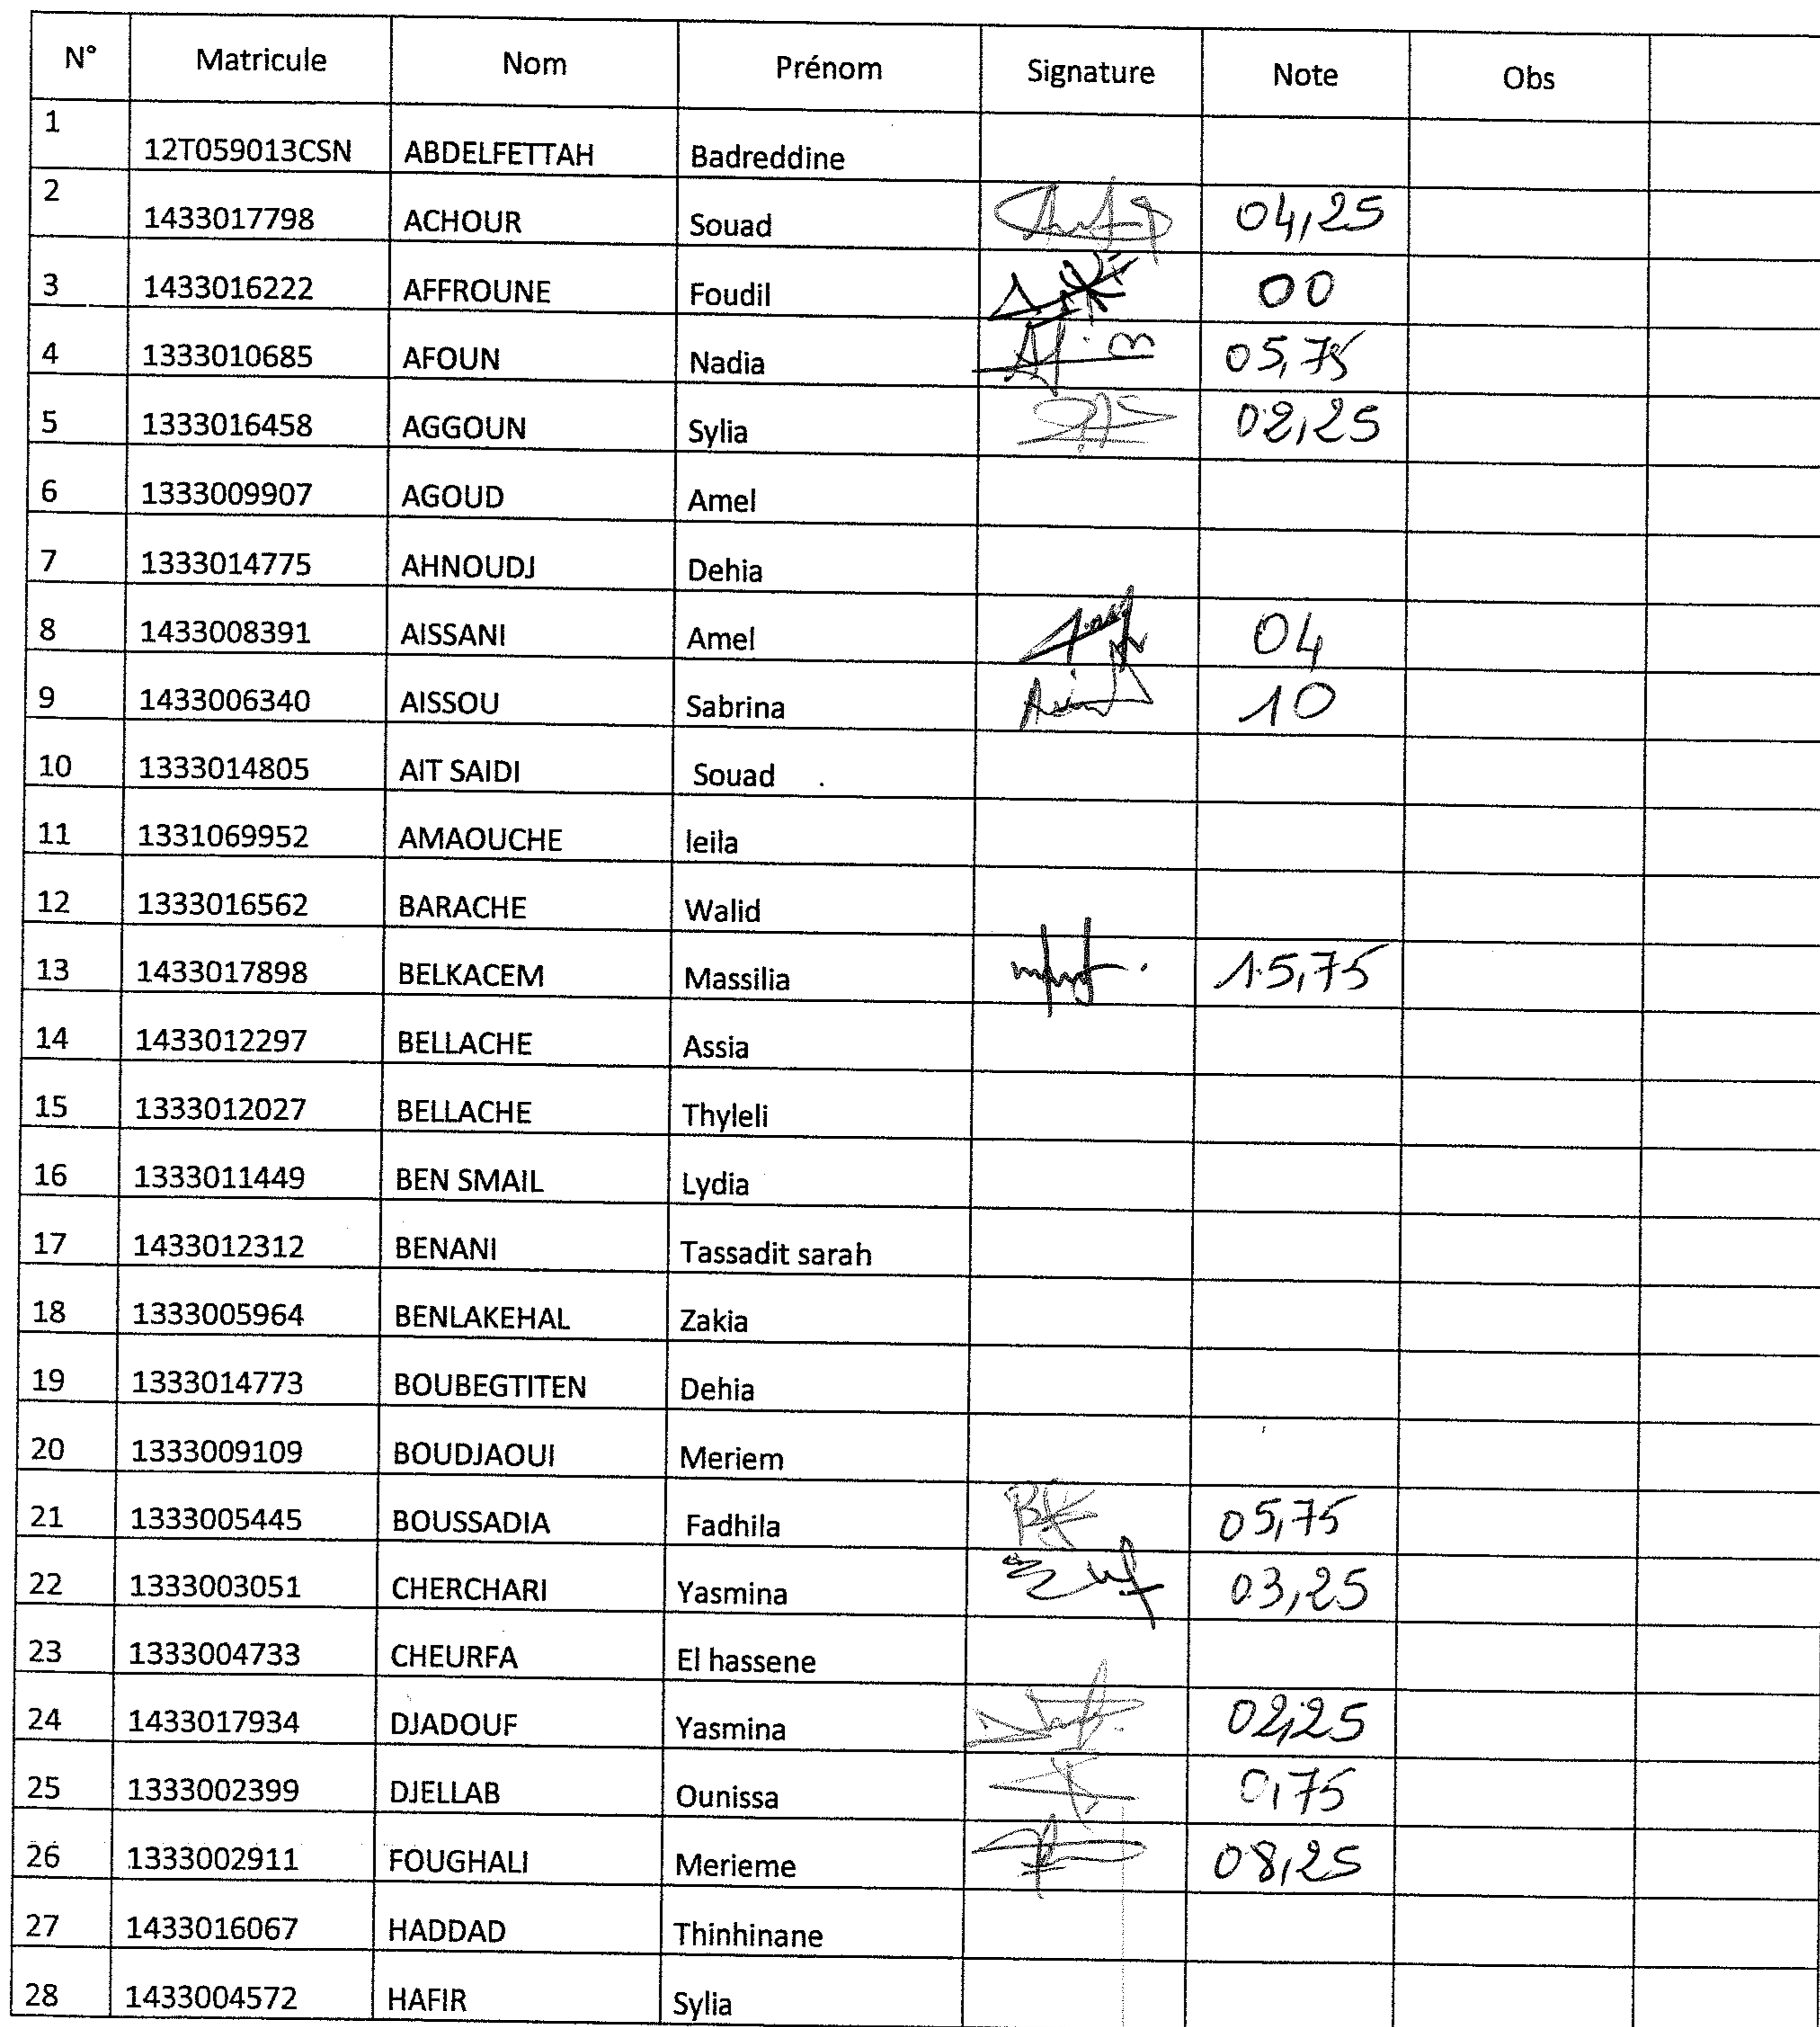 N° Matricule Nom Prénom Signature Note Obs
1 12T059013CSN ABDELFETTAH Badreddine
2 1433017798 ACHOUR Souad 04,25
3 1433016222 AFFROUNE Foudil 00
4 1333010685 AFOUN Nadia 05,75
5 1333016458 AGGOUN Sylia 02,25
6 1333009907 AGOUD Amel
7 1333014775 AHNOUDJ Dehia
8 1433008391 AISSANI Amel 04
9 1433006340 AISSOU Sabrina 10
10 1333014805 AIT SAIDI Souad
11 1331069952 AMAOUCHE leila
12 1333016562 BARACHE Walid
13 1433017898 BELKACEM Massilia 15,75
14 1433012297 BELLACHE Assia
15 1333012027 BELLACHE Thyleli
16 1333011449 BEN SMAIL Lydia
17 1433012312 BENANI Tassadit sarah
18 1333005964 BENLAKEHAL Zakia
19 1333014773 BOUBEGTITEN Dehia
20 1333009109 BOUDJAOUI Meriem
21 1333005445 BOUSSADIA Fadhila 05,75
22 1333003051 CHERCHARI Yasmina 03,25
23 1333004733 CHEURFA El hassene
24 1433017934 DJADOUF Yasmina 02,25
25 1333002399 DJELLAB Ounissa 0,75
26 1333002911 FOUGHALI Merieme 08,25
27 1433016067 HADDAD Thinhinane
28 1433004572 HAFIR Sylia